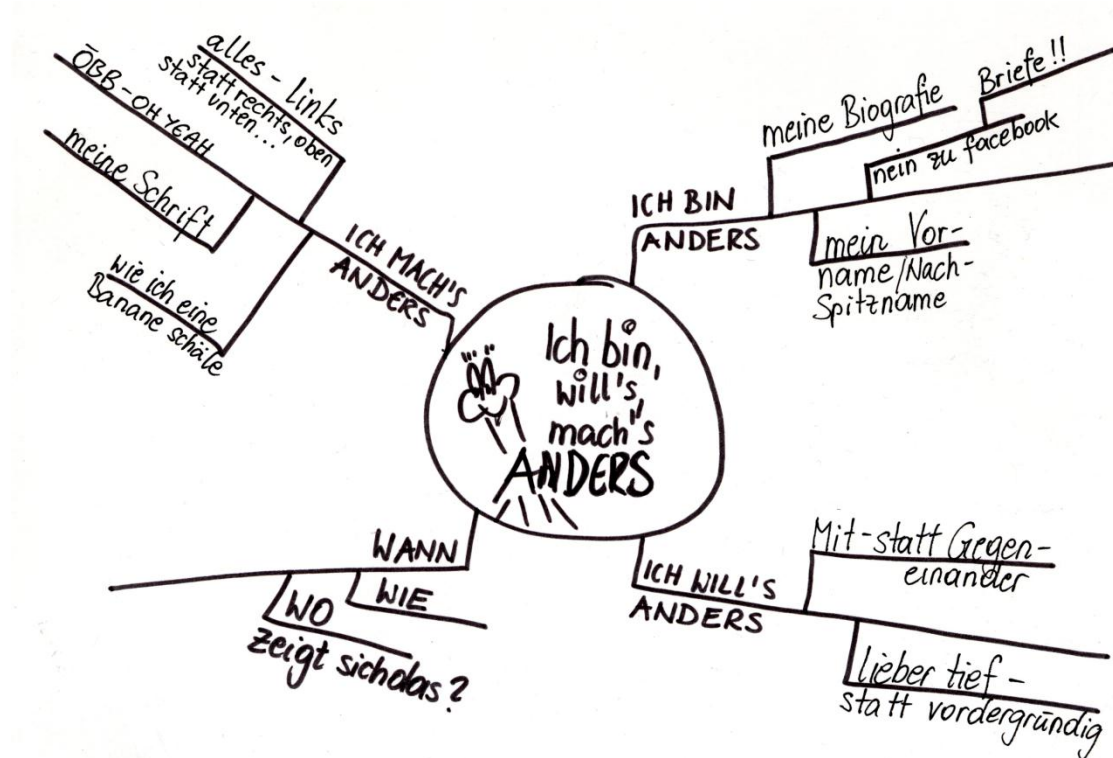 Ich bin,
will's,
mach's
ANDERS
ICH MACH'S
ANDERS
alles - Links
statt rechts, oben
statt unten...
ÖBB - OH YEAH
meine Schrift
wie ich eine
Banane schäle
ICH BIN
ANDERS
meine Biografie
Briefe!!
nein zu facebook
mein Vor-
name/Nach-
Spitzname
ICH WILL'S
ANDERS
Mit-statt Gegen-
einander
lieber tief -
statt vordergründig
WANN
WIE
WO
zeigt sich das?